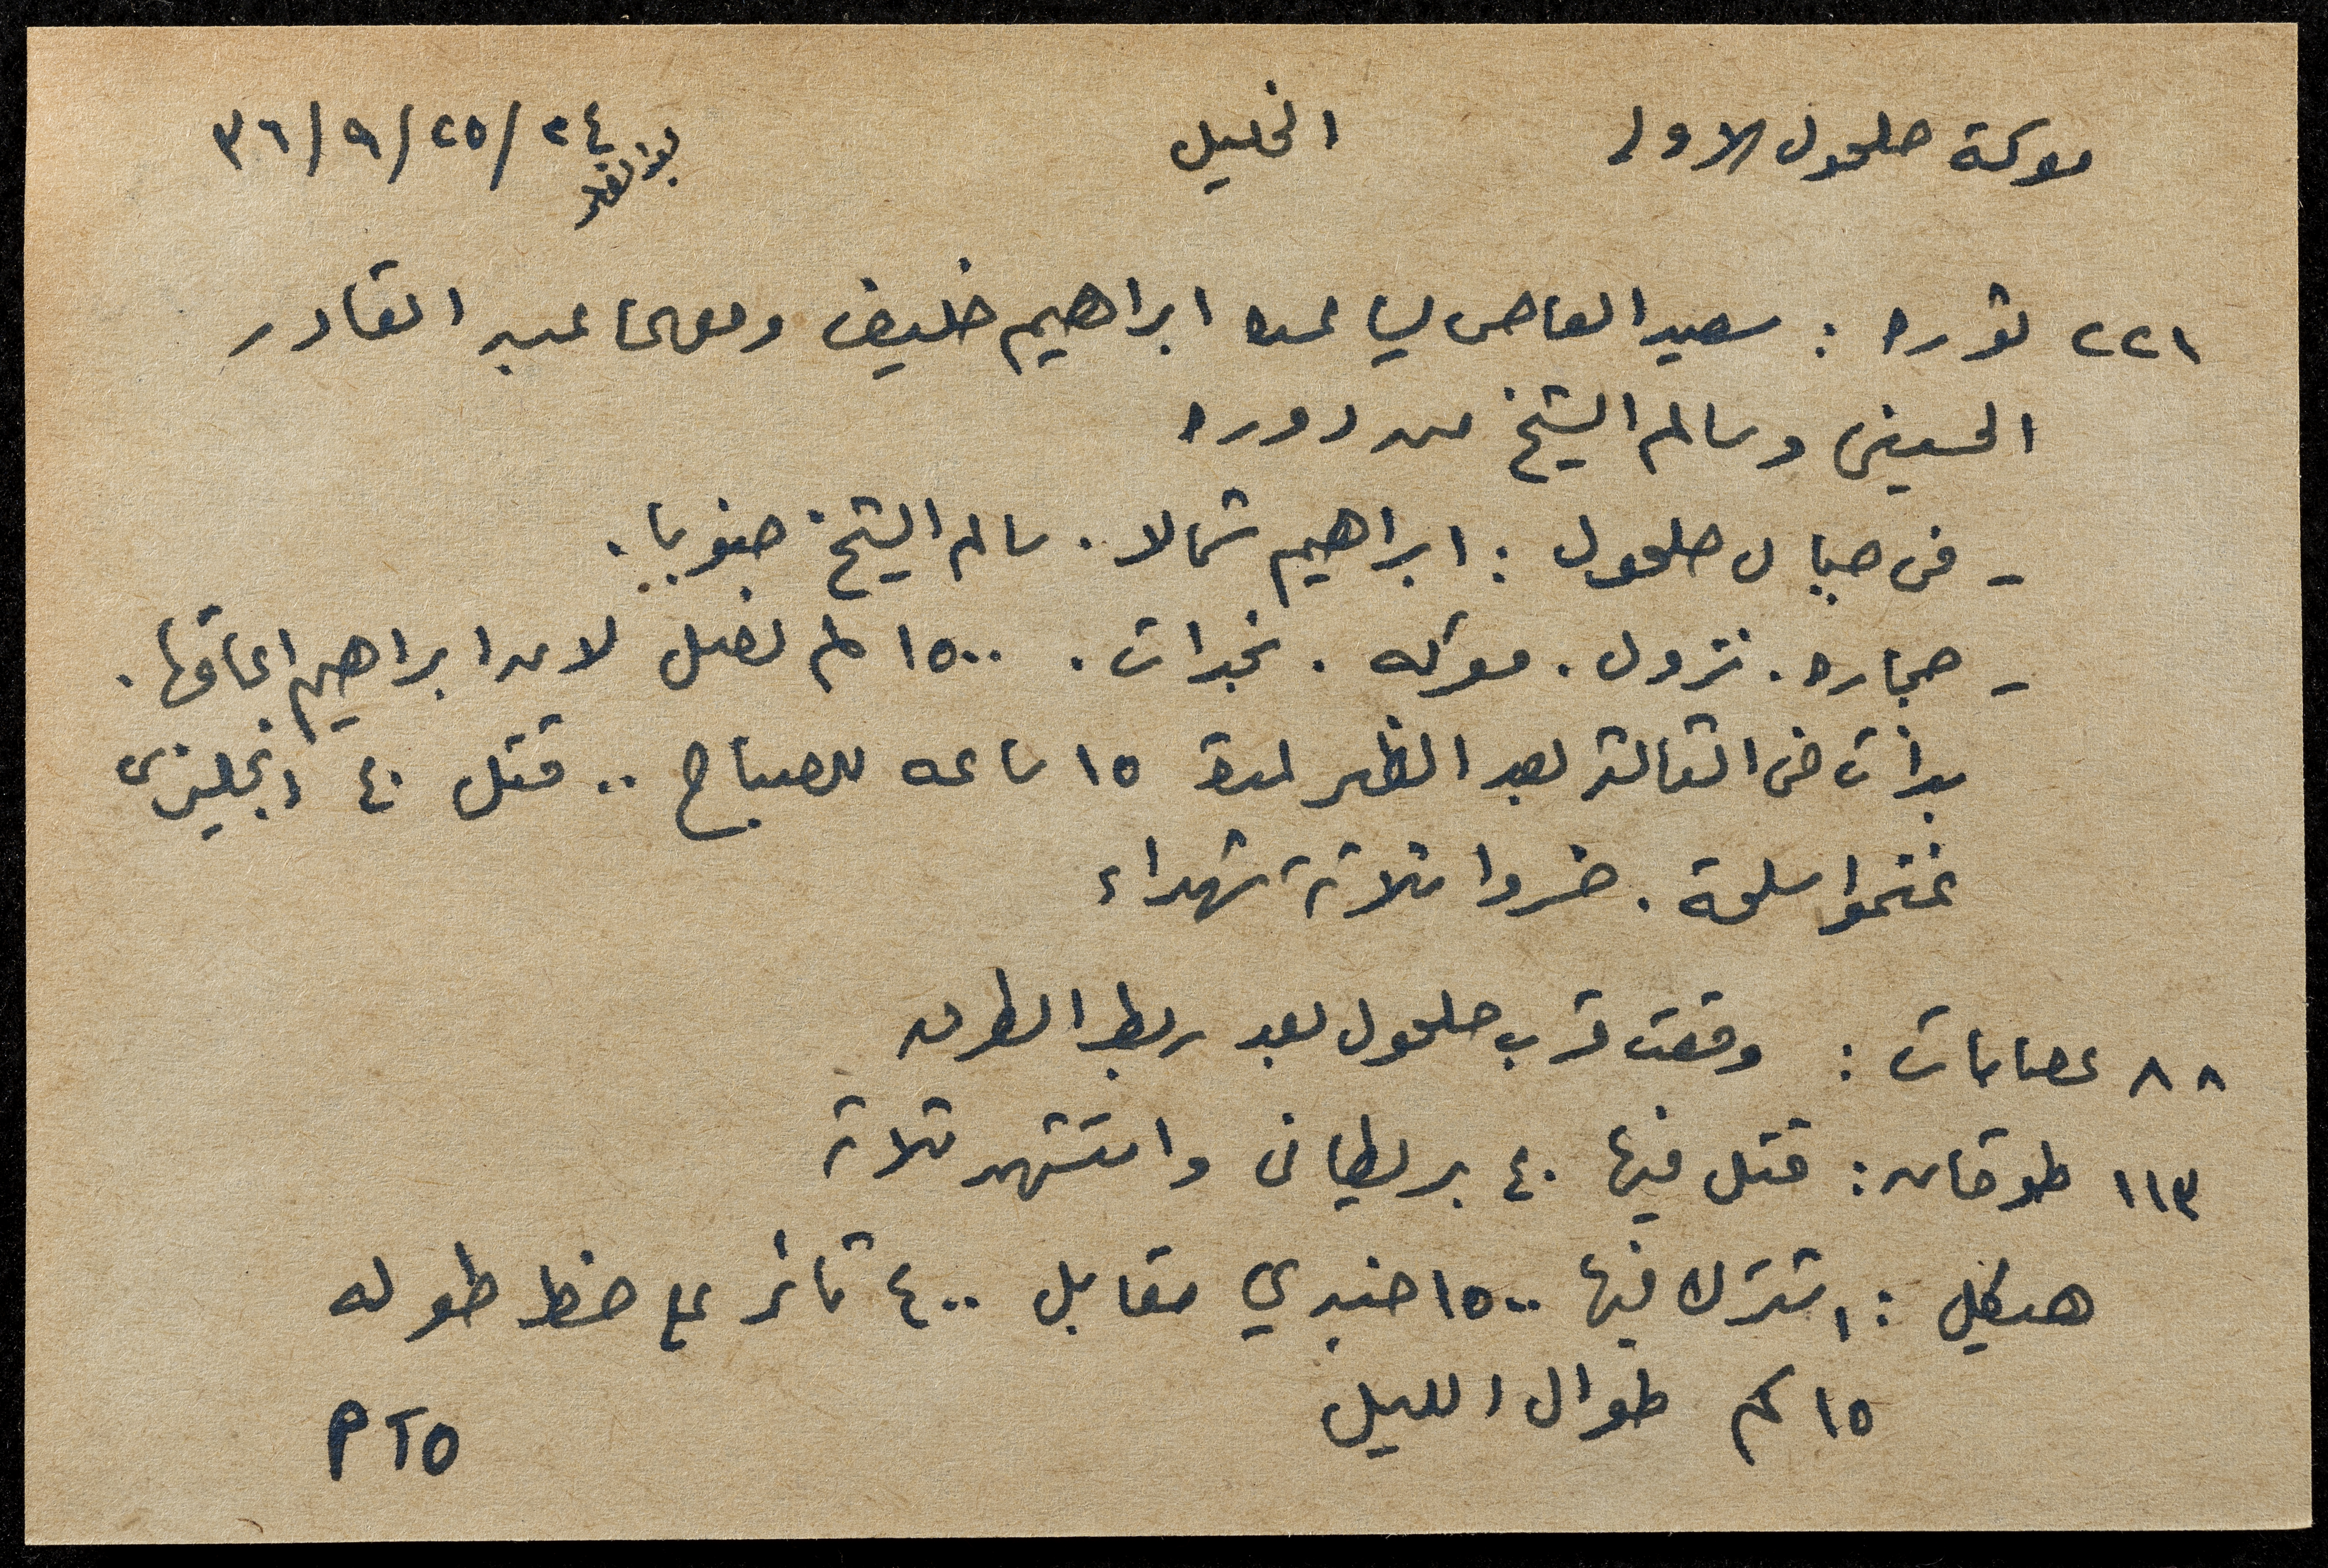 معركة حلحول الاولى الخليل ٢٤/٢٥/٩/٣٦
بعد الظهر
٢٢١ ثوره : سعيد العاص يساعده ابراهيم خليف ومعهما عبد القادر
الحسيني وسالم الشيخ من دوره
- في جبال حلحول : ابراهيم شمالا . سالم الشيخ جنوبا .
- حجاره . نزول . معركه . نجدات . ١٥٠٠ لم تصل لان ابراهيم اعاقها .
بدأت في الثالثة بعد الظهر لمدة ١٥ ساعه للصباح .. قتل ٤٠ انجليزي
غنموا اسلحة . خسروا ثلاثة شهداء
٨٨ عصابات : وقعت قرب حلحول بعد ربط الطرق
١١٣ طوقان : قتل فيها ٤٠ بريطاني واستشهد ثلاثة
هيكل : اشترك فيها ١٥٠٠ جندي مقابل ٤٠٠ ثائر على خط طوله
١٥ كم طوال الليل
PTO